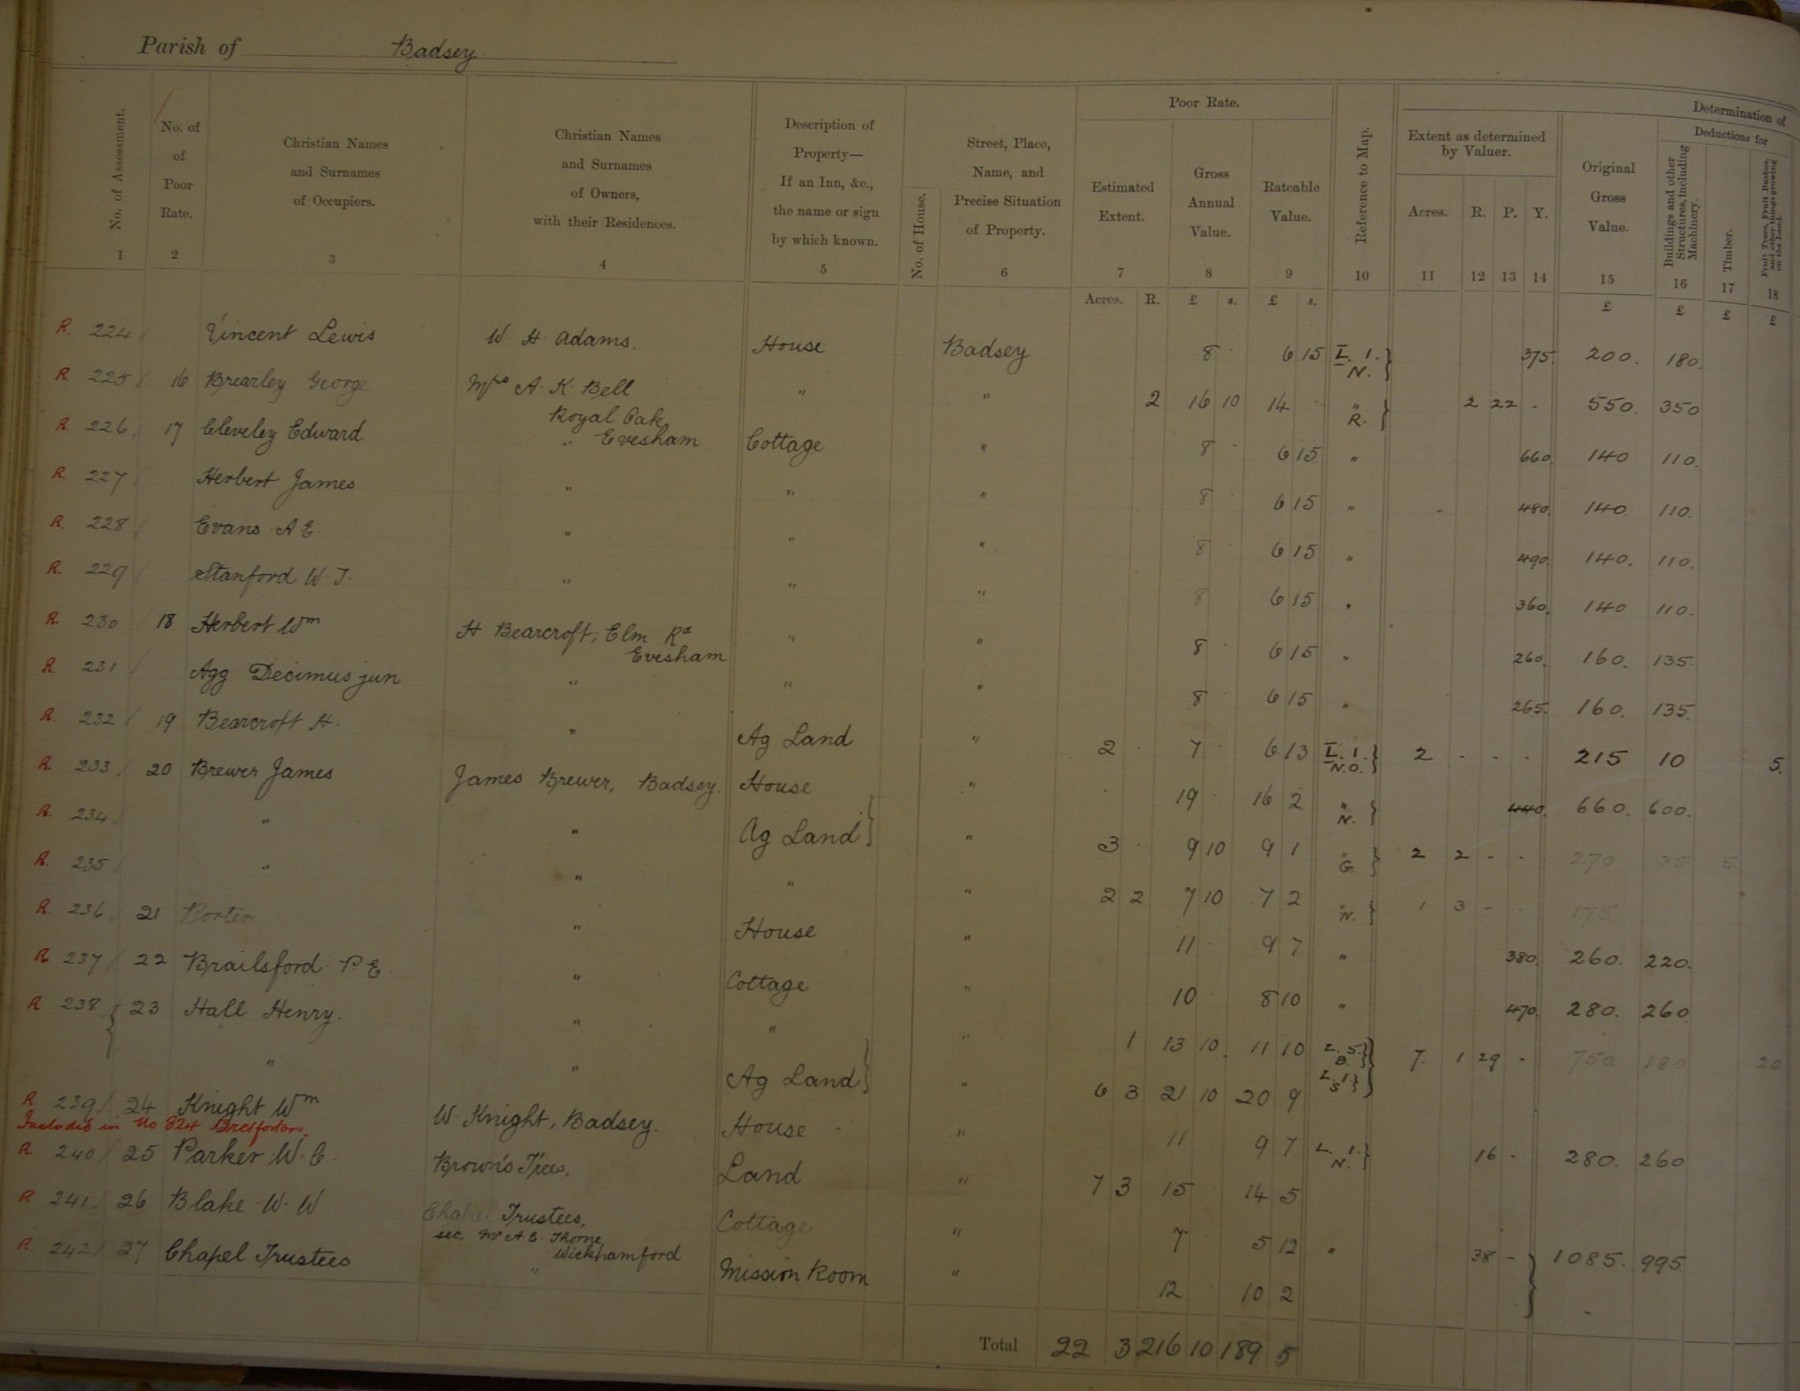 Parish of Badsey
Determination of
Poor Rate.
Extent as determined by Valuer.
Deductions for
No. of Assessment.
No. of Poor Rate.
Christian Names and Surnames of Occupiers.
Christian Names and Surnames of Owners, with their Residences.
Description of Property— If an Inn, &c., the name or sign by which known.
No. of House.
Street, Place, Name, and Precise Situation of Property.
Estimated Extent.
Gross Annual Value.
Rateable Value.
Reference to Map.
Acres. R. P. Y.
Original Gross Value.
Buildings and other Structures, including Machinery.
Timber.
Fruit Trees, Fruit Bushes, and other things growing on the Land.
1 2 3 4 5 6 7 8 9 10 11 12 13 14 15 16 17 18
Acres. R. £ s. £ s. £ £ £ £
R. 224 Vincent Lewis W. H. Adams. House Badsey 8 6 15 I. 1. N. } 375. 200. 180.
R 225 16 Brearley George Mrs A. K. Bell " " 2 16 10 14 " R. } 2 22 - 550. 350
Royal Oak
R 226 17 Cleveley Edward " Evesham Cottage " 8 6 15 " 660. 140 110.
R. 227 Herbert James " " " 8 6 15 " 480. 140 110.
R. 228 Evans A E. " " " 8 6 15 " 490. 140. 110.
R. 229 Stanford W. J. " " " 8 6 15 " 360. 140 110.
R. 230 18 Herbert Wm H Bearcroft, Elm Rd " " 8 6 15 " 260. 160. 135.
Evesham
R. 231 Agg Decimus jun " " " 8 6 15 " 265. 160. 135.
R. 232 19 Bearcroft H. " Ag Land " 2 7 6 13 I. 1. N.O. } 2 - - - 215 10 5.
R. 233 20 Brewer James James Brewer, Badsey. House " 19 16 2 " N. } 440. 660. 600.
R. 234 " " Ag Land } " 3 9 10 9 1 " G. } 2 2 - - 270 35 5
R. 235 " " " " 2 2 7 10 7 2 " N. } 1 3 - - 175
R. 236 21 Porter " House " 11 9 7 " 380. 260. 220.
R 237 22 Brailsford P. E. " Cottage " 10 8 10 " 470. 280. 260
R 238 { 23 Hall Henry. " " " 1 13 10 11 10 L. 5. B. } 7. 1 29 - 750 180 20
" " Ag Land } " 6 3 21 10 20 9 L. 1 S }
R 239 24 Knight Wm W. Knight, Badsey. House " 11 9 7 L. 1. N. } 16 - 280. 260
Included in No 824 Bretforton.
R 240 25 Parker W. C. Brown's Trees, Land " 7 3 15 14 5
R 241 26 Blake W. W Chapel Trustees, Cottage " 7 5 12 " 38 - } 1085. 995.
sec. Mr A E. Thorne
Wickhamford
R 242 27 Chapel Trustees " Mission Room " 12 10 2 -
Total 22 3 216 10 189 5